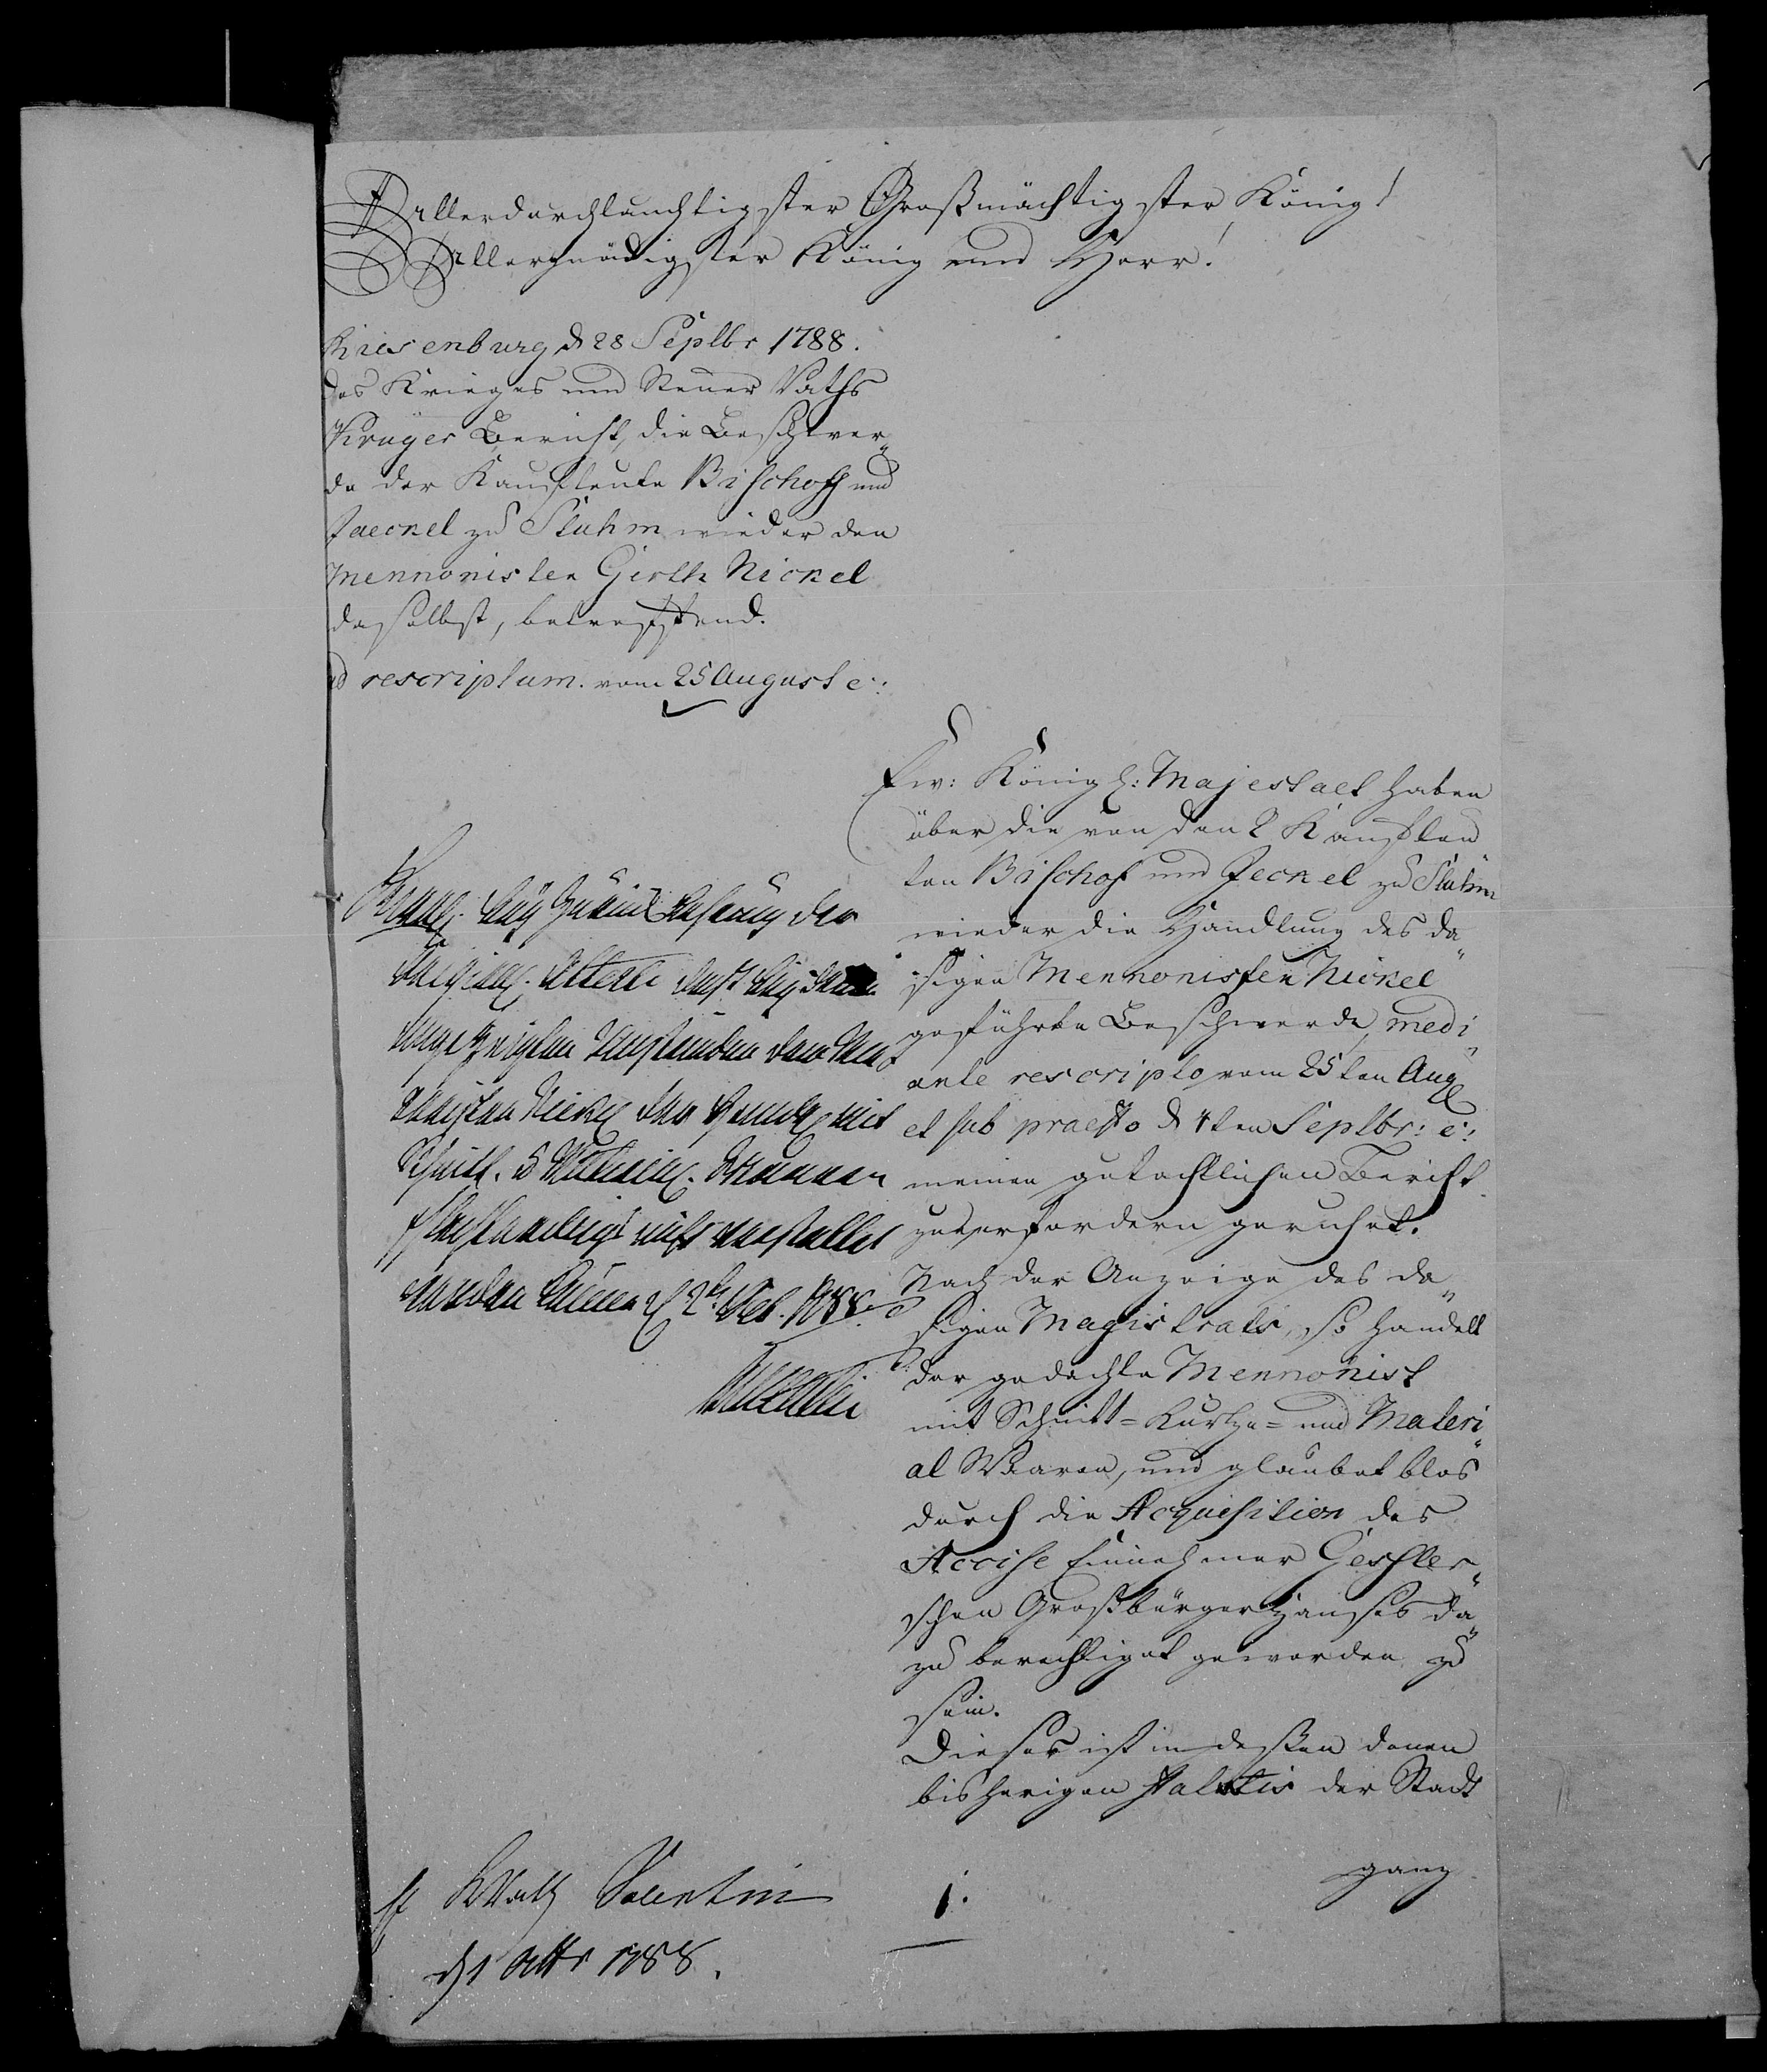 Allerdurchlauchtigster Großmächtigster König!
Allergnädigster König und Herr!
Riesenburg d 28 Septbr 1788.
des Krieges und Steuer Raths
Krüger Bericht, die Beschwer„
de der Kaufleute Bischoff und
Jaeckel zu Stuhm wieder den
Mennonisten Girth Nickel
daselbst, betreffend.
ad rescriptum vom 25 August c:
Ew: Königl: Majestaet haben
über die von den 2 Kaufleu„
ten Bischof und Jeckel zu Stuhm
wieder die Handlung des da„
sigen Mennonisten Nickel
geführte Beschwerde, medi„
ante rescripto vom 25ten Aug
et sub praes̃to d 4ten Septbr: c:
meinen gutachtlichen Bericht
zu erfordern geruhet.
Nach der Anzeige des da„
sigen Magistrats, so handelt
der gedachte Mennonist
mit Schnitt- Kurtze- und Materi„
al Waaren, und glaubet blos
durch die Acquisition des
Accise Einnehmer Geshler„
schen Großbürger Hauses da„
zu berechtiget geworden zu
sein.
Dieses ist indeßen denen
bisherigen Statutis der Stadt
ganz
der
Umständen dem Men„
Nickel der Handel mit
Schnitt. &
nicht
werden 2t Oct. 1788.
Valentin
1.
d 1 Octbr 1788.